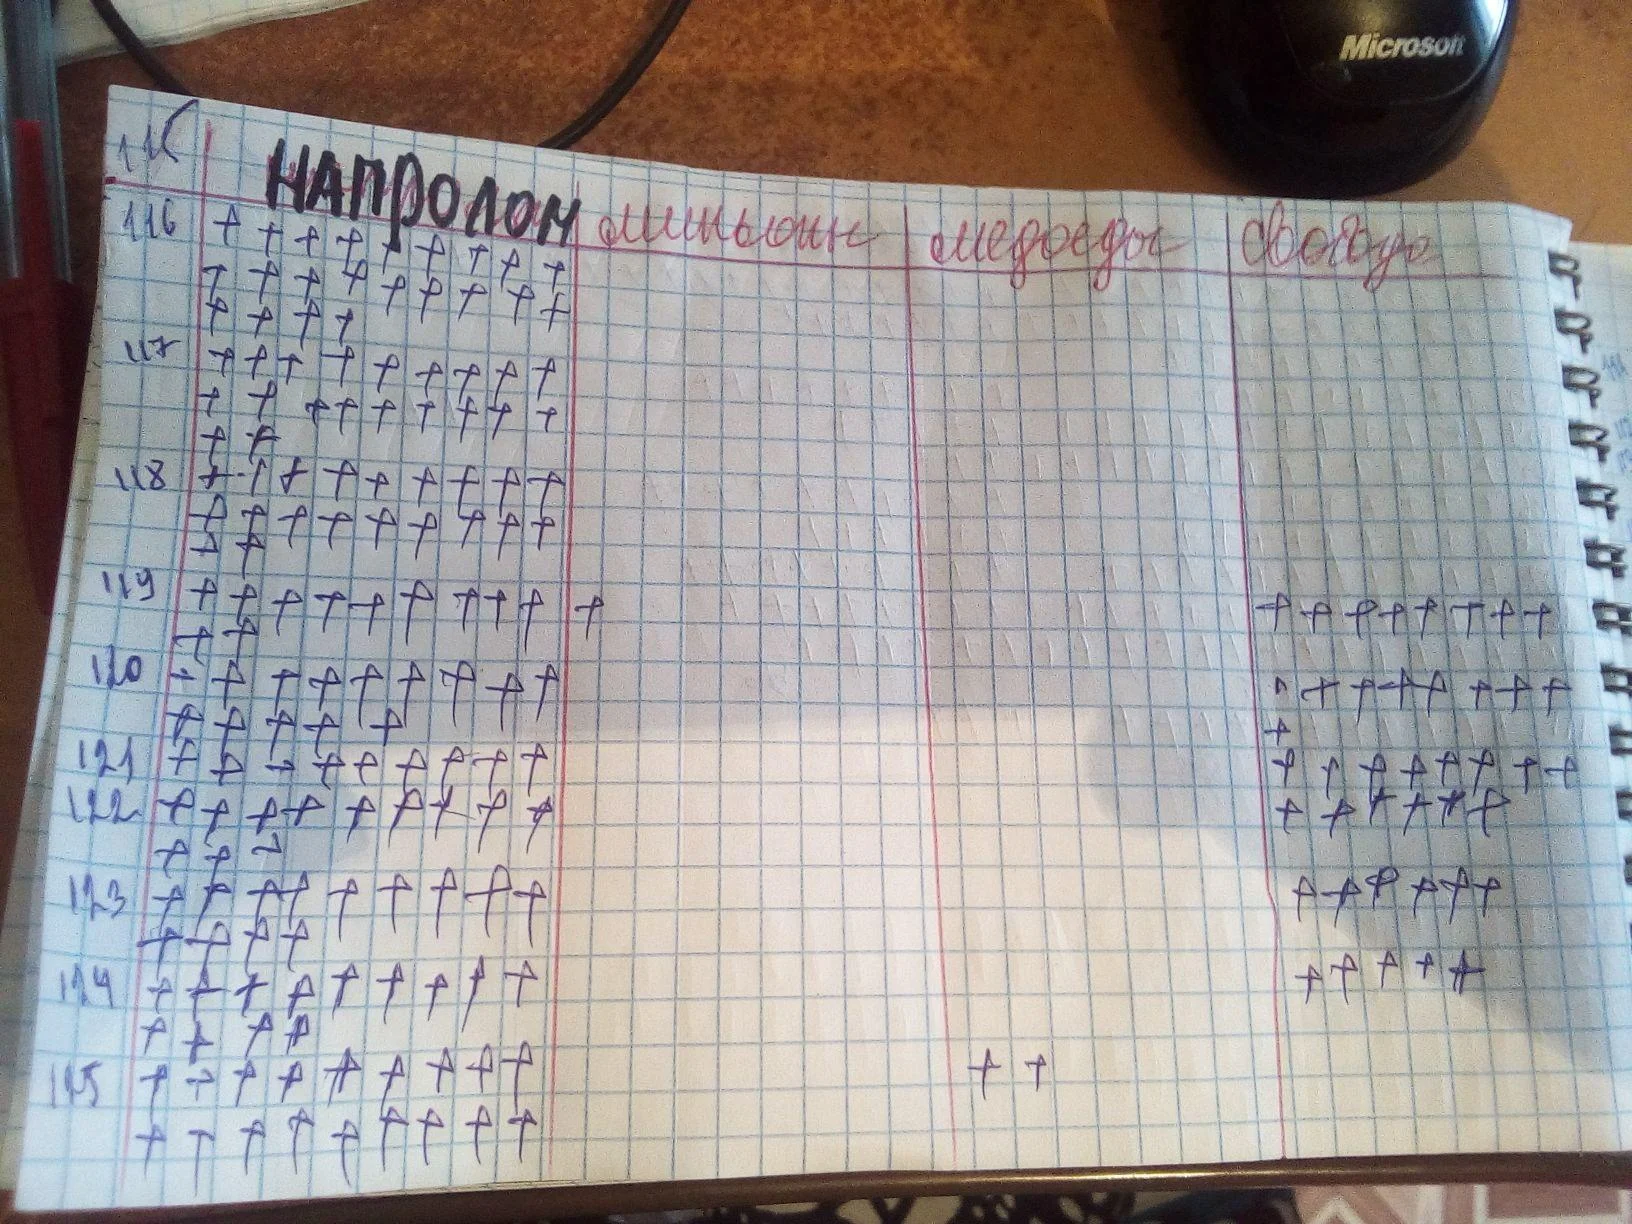 Microsoft
115
НАПРОЛОМ миньоны медоеды свобода
116 + + + + + + + + +
+ + + + + + + + +
+ + + +
117 + + + + + + + + +
+ + + + + + + + +
+ +
118 + + + + + + + + +
+ + + + + + + + +
+ +
119 + + + + + + + + + + + + + + + + + +
+ +
120 + + + + + + + + + + + + + + + + +
+ + + + + +
121 + + + + + + + + + + + + + + + + +
122 + + + + + + + + + + + + + + +
+ + +
123 + + + + + + + + + + + + + + +
+ + + +
124 + + + + + + + + + + + + + +
+ + + +
125 + + + + + + + + + + +
+ + + + + + + + +